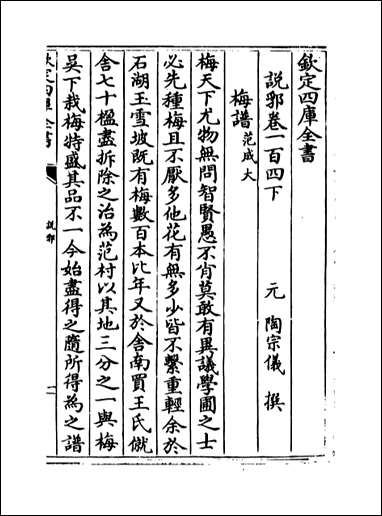 欽定四庫全書
說郛卷一百四下
元 陶宗儀 撰
梅譜范成大
梅天下尤物無問智賢愚不肖莫敢有異議學圃之士
必先種梅且不厭多他花有無多少皆不繫重輕余於
石湖玉雪坡既有梅數百本比年又於舍南買王氏僦
舍七十楹盡拆除之治為范村以其地三分之一與梅
吳下栽梅特盛其品不一今始盡得之隨所得為之譜
欽定四庫全書
說郛
一